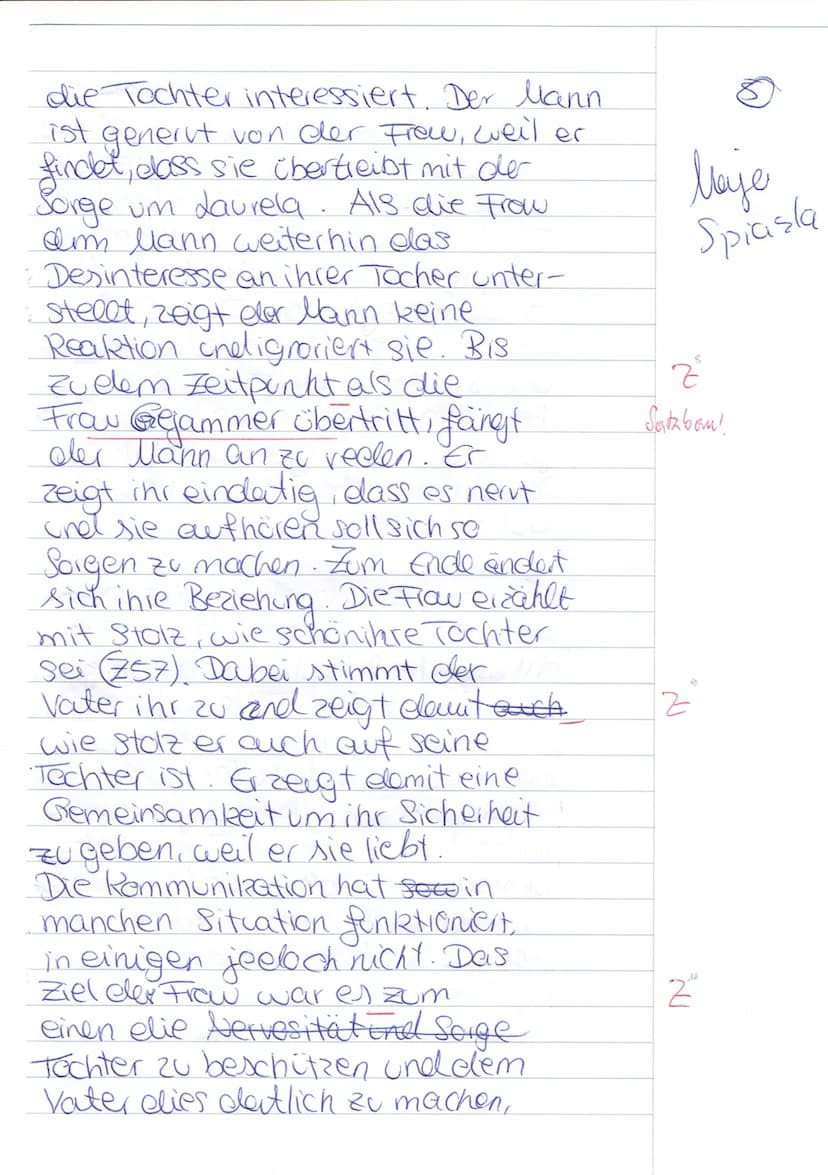 5
Maje
Spiasla
die Tochter interessiert. Der Mann
ist genervt von der Frau, weil er
findet, dass sie übertreibt mit der
Sorge um Laurela. Als die Frau
dem Mann weiterhin das
Desinteresse an ihrer Tocher unter-
stellt, zeigt der Mann keine
Reaktion und igroriert sie. Bis
zu dem Zeitpunkt als die Z
Frau Gejammer übertritt, fängt Satzbau!
der Mann an zu reden. Er
zeigt ihr eindatig, dass es nervt
und sie aufhören soll sich so
Sorgen zu machen. Zum Ende ändert
sich ihre Beziehung. Die Frau erzählt
mit Stolz, wie schön ihre Tochter
sei (Z57). Dabei stimmt der
Vater ihr zu und zeigt damit auch Z
wie stolz er auch auf seine
Tochter ist. Er zeigt damit eine
Gemeinsamkeit um ihr Sicherheit
zu geben, weil er sie liebt.
Die Kommunikation hat in
manchen Situation funktioniert,
in einigen jedoch nicht. Das
Ziel der Frau war es zum Z
einen die Nervosität und Sorge
Tochter zu beschützen und dem
Vater dies deutlich zu machen,